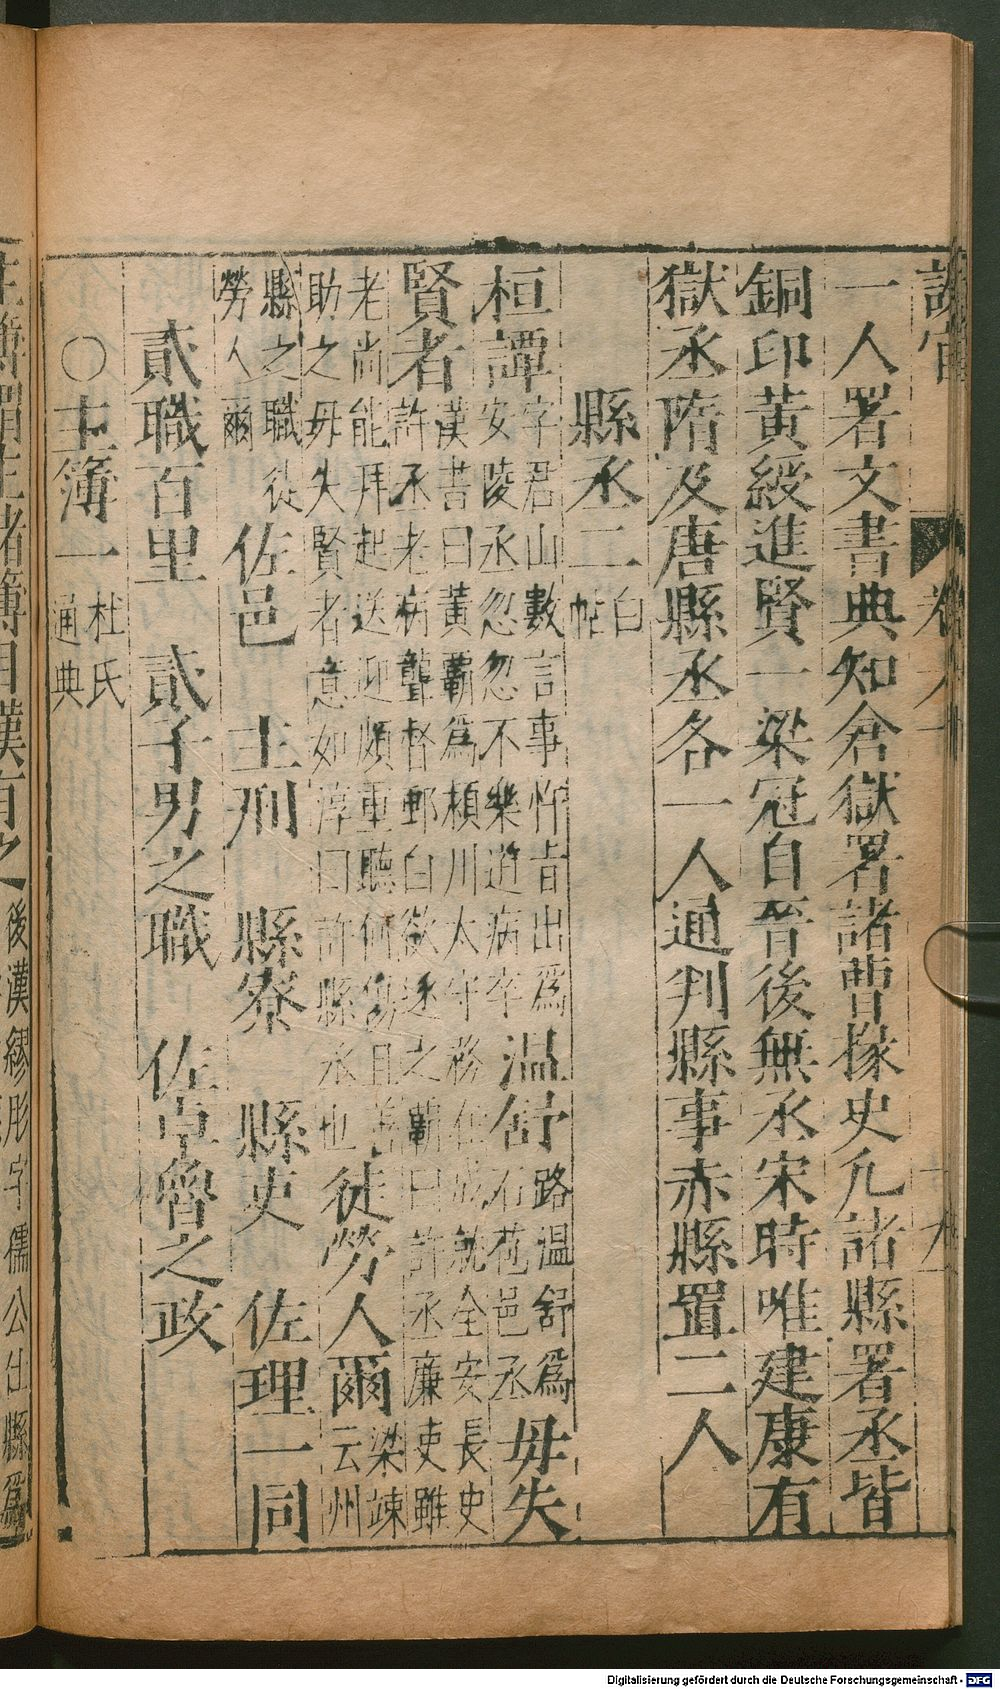 一人署文書典知倉獄署諸曹掾史凡諸縣署丞皆
銅印黃綬進賢一梁冠自晉後無丞宋時唯建康有
獄丞隋及唐縣丞各一人通判縣事赤縣置二人
縣丞二白帖
桓譚字君山數言事忤旨出爲安陵丞忽忽不樂道病卒 溫舒路溫舒爲石苞邑丞 毋失
賢者漢書曰黃霸爲潁川太守務在成就全安長史許丞老病聾督郵白欲逐之霸曰許丞廉吏雖
老尚能拜起送迎頗重聽何傷且善助之毋失賢者意如淳曰許縣丞也 徒勞人爾梁竦云州
縣之職徒勞人爾 佐邑 主刑 縣寮 縣吏 佐理一同
貳職百里 貳子男之職 佐卓魯之政
〇主簿一杜氏通典
主簿謂主諸簿目漢有之後漢繆肜字孺公仕縣爲
Digitalisierung gefördert durch die Deutsche Forschungsgemeinschaft - DFG